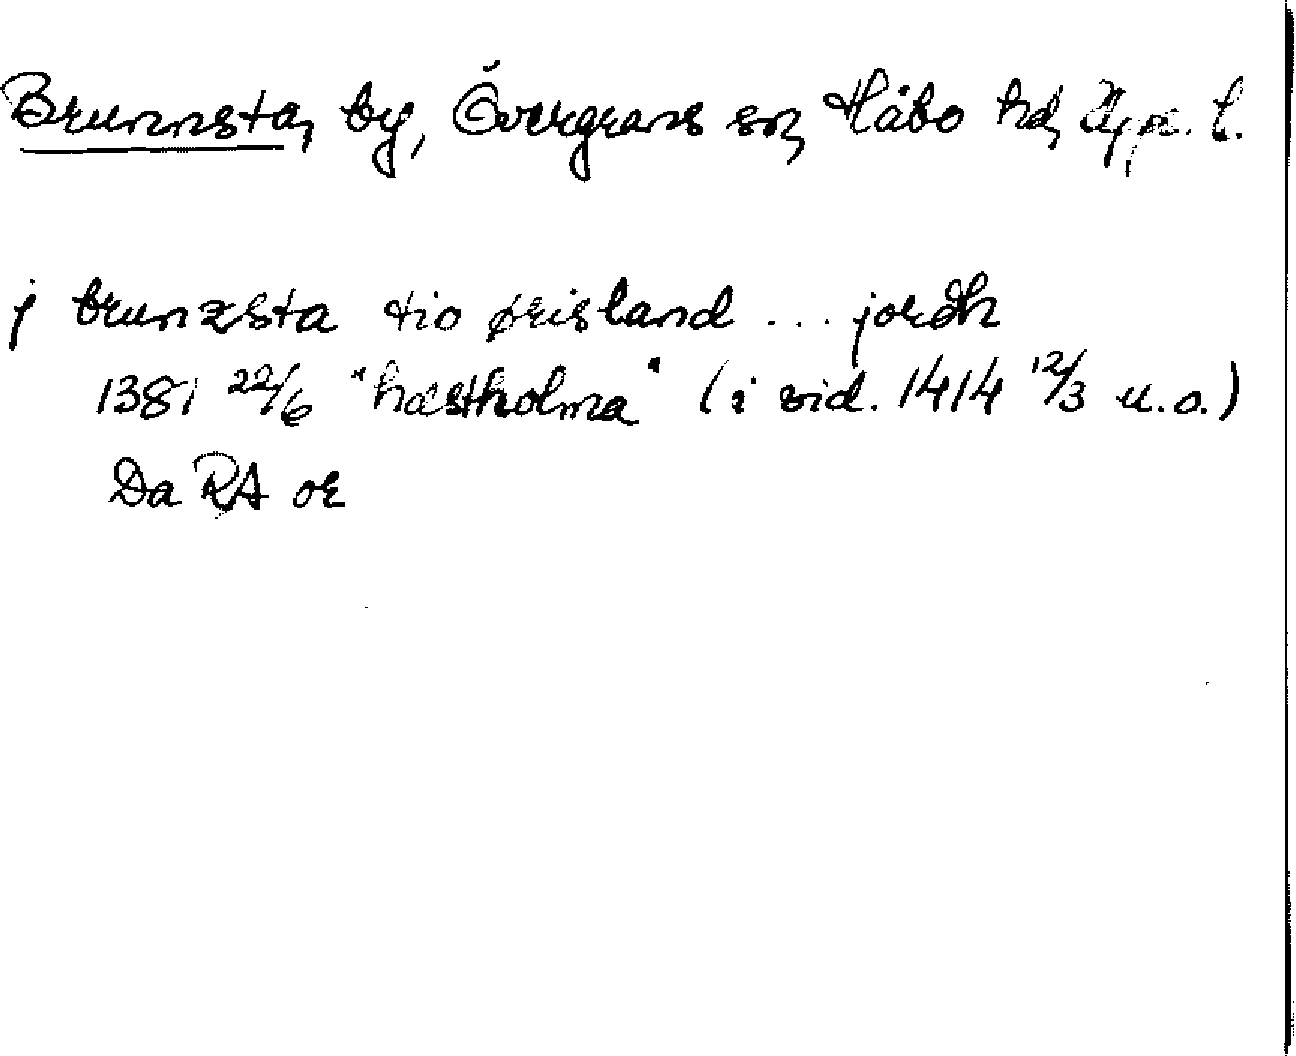 Brunnsta, by, Övergrans sn, Håbo hd, Upps. l.
j brunzsta tio ørisland ... jordh
1381 22/6 "hæstholma" (i vid. 1414 12/3 u.o.)
Da RA or